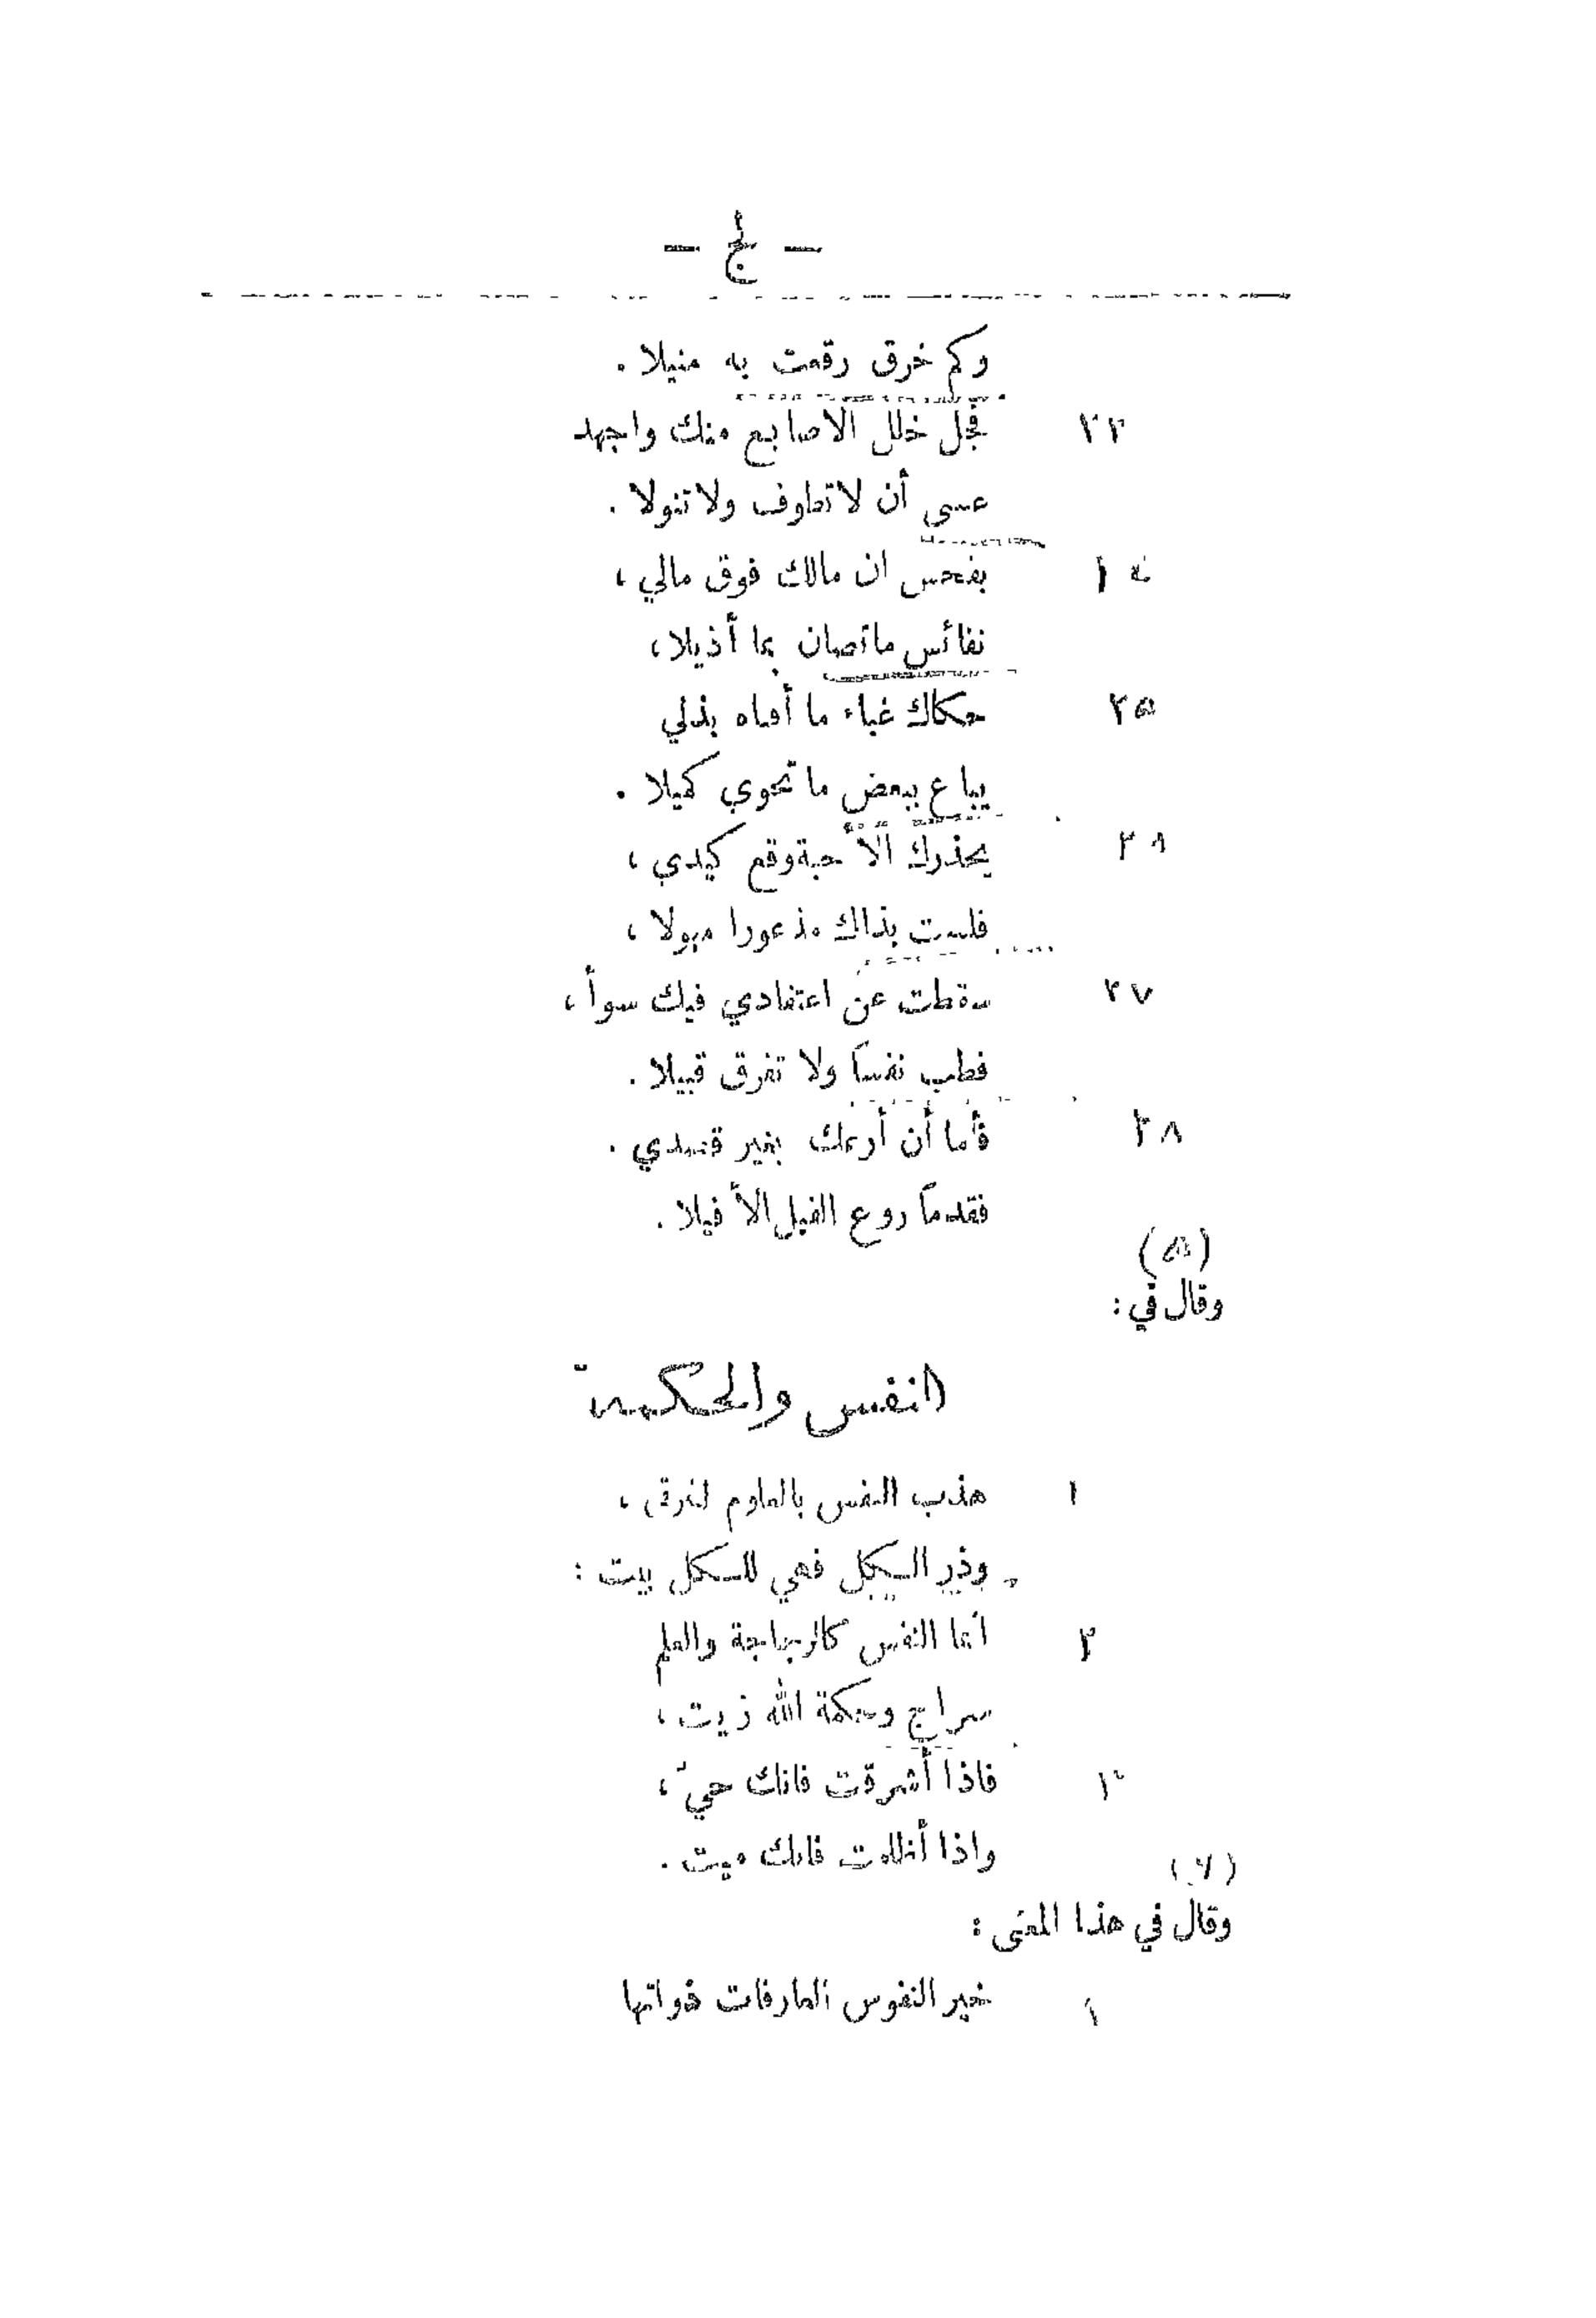 – لج –
وكم خرق رقعت به منيلا .
٢٣ فجل خلل الاصابع منك واجهد
عسى أن لا تطوف ولا تنولا .
بفحس ان مالك فوق مالي ،
نفائس ما تصان بما أذيلا ،
٢٥ حكاك غباء ما أفناه بذلي
يباع ببعض ما تحوي كميلا .
يحذرك الأحبة وقع كيدي ،
فلست بذاك مذعورا مهولا ،
٢٧ سقطت عن اعتقادي فيك سوأ ،
فطب نفساً ولا تفرق قبيلا .
٢٨ فأما أن أرعك بغير قصدي .
فقدماً روع الفيل الأفيلا .
(٥)
وقال في :
النفس والحكمة
١ هذب النفس بالعلوم لترقى ،
وذر الكل فهي للكل بيت :
٢ انما النفس كالزجاجة والعلم
سراج وحكمة الله زيت ،
٣ فاذا أشرقت فانك حيّ ،
واذا أظلمت فانك ميت .
(٦)
وقال في هذا المعنى :
١ خير النفوس العارفات ذواتها